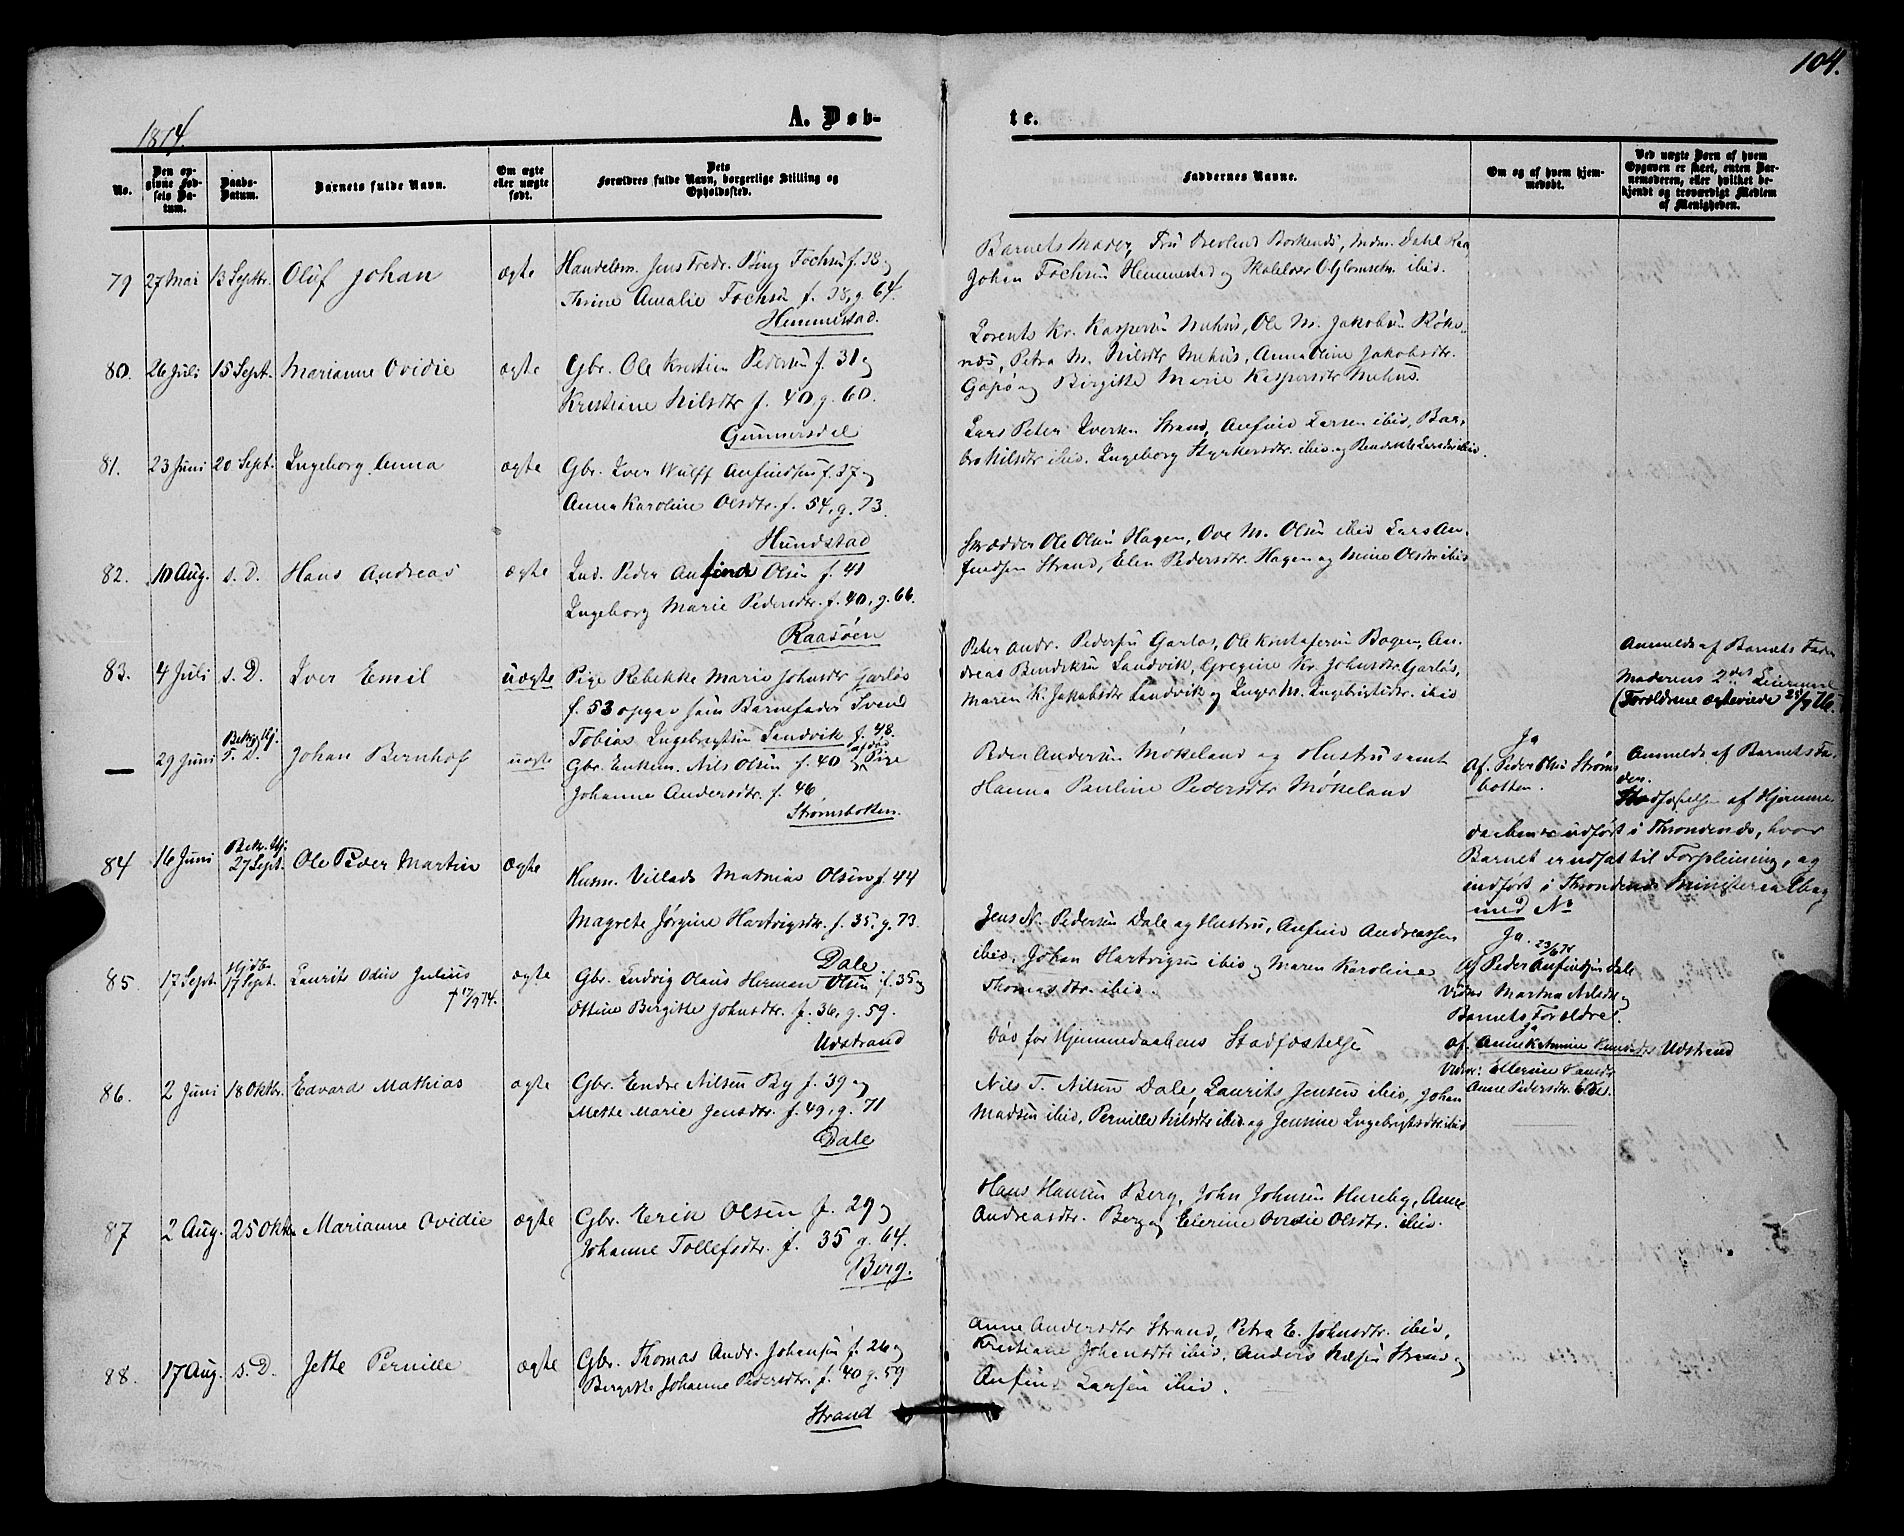 104.
1874.
A. Døb-
te.
No.
Den op-
givne Fød-
sels Da-
tum.
Daabs-
Datum.
Barnets fulde Navn.
Om ægte
eller uægte
født.
Dets
Forældres fulde Navn, borgerlige Stilling og
Opholdssted.
Faddernes Navne.
Om og af hvem hjem-
medøbt.
Ved uægte Børn af hvem
Opgaven er skeet, enten Bar-
nemoderen, eller hvilket be-
kjendt og troværdigt Medlem
af Menigheden.
79 27 Mai 13 Septbr. Oluf Johan ægte Handelsm. Jens Fredr. Bing Fochsen f. 38 og
Thrine Amalie Fochsen f. 38, g. 64.
Hemmestad.
Barnets Moder, Fru Borkenes, Dahl
Johan Fochsen Hemmestad og ibid.
80. 26 Juli 15 Sept. Marianne Ovidie ægte Gbr. Ole Kristian Pedersen f. 31 og
Kristiane Nilsdtr f. 40, g. 60.
Gunnersdal
Lorents Kr. Kaspersen Mehus, Ole M. Jakobsen Røke-
næs, Petra M. Nilsdtr Mehus, Anna Oline Jakobsdtr.
Gapø og Birgitte Marie Kaspersdtr Mehus.
81. 23 Juni 20 Sept. Ingeborg Anna ægte Gbr. Iver Wulff Anfindsen f. 37 og
Anna Karoline Olsdtr. f. 54, g. 73.
Hundstad
Lars Peter Iversen Strand, Anfind Larsen ibid, Bar-
bro Nilsdtr ibid, Ingeborg Styrkersdtr. ibid og Larsdtr ibid.
82. 10 Aug. s. D. Hans Andreas ægte Ind. Peder Anfind Olsen f. 41
Ingeborg Marie Pedersdtr. f. 40, g. 66.
Raasøen
Skrædder Ole Olsen Hagen, Ove M. Olsen ibid Lars An-
findsen Strand, Elen Pedersdtr. Hagen og Mine Olsdtr ibid
83. 4 Juli s. D. Iver Emil uægte Pige Rebekke Marie Johnsdtr Garlos
f. 53 opgav som Barnefader Svend
Tobias Ingebrigtsen Sandvik f. 48.
Peter Andr. Pedersen Garlos, Ole Kristofersen Bogen, An-
dreas Bendiksen Sandvik, Gregine Kr. Johnsdtr Garlos,
Maren K. Jakobsdtr Sandvik og Inger M. Ingebrigtsdtr. ibid
Anmeldt af Barnets Fader
Moderens 2det Leiermaal
(Forældrene ægteviede 76.
29 Juni Bekr. Hj. D. Johan Bernhof uægte Gbr. Enkem. Nils Olsen f. 40 Pige
Johanne Andersdtr. f. 46
Strømsbotten.
Peder Andersen Møkeland og Hustru samt
Hanna Pauline Pedersdtr Møkeland
Ja
Af. Peder Olsen Strøms
botten.
Anmeldt af Barnets Fa-
der.
Stadfæstelsen af Hjemme-
daaben er udført i Throndenes, hvor
Barnet er udsat til Forpleining, og
indført i Throndenes Ministerialbog
med No
84 16 Juni Bekr. Hj. 27 Sept. Ole Peder Martin ægte Husm. Villads Mathias Olsen f. 44
Magrete Jørgine Hartvigsdtr. f. 35, g. 73.
Dale
Jens N. Pedersen Dale og Hustru, Anfind Andreassen
ibid, Johan Hartvigsen ibid og Maren Karoline
Thomasdtr. ibid.
Ja.
af Peder Anfindsen Dale
Vidner Martha Nilsdtr og
Barnets Forældre.
85. 17 Sept. Hjdbt. 17 Sept. Laurits Odin Julius
† 17/9 74.
ægte Gbr. Ludvig Olaus Herman Olsen f. 35 og
Ottine Birgitte Johnsdtr. f. 36, g. 59.
Udstrand
Død før Hjemmedaabens Stadfæstelse
Ja
af Anne Katrine Udstrand
Vidner: Ellerine Hansdtr
Anne Pedersdtr. ibid.
86. 2 Juni 18 Oktbr. Edvard Mathias ægte Gbr. Endre Nilsen By f. 39 og
Mette Marie Jensdtr. f. 49, g. 71
Dale
Nils T. Nilsen Dale, Laurits Jensen ibid, Johan
Madsen ibid, Pernille Nilsdtr ibid og Jensine Ingebrigtsdtr ibid
87 2 Aug. 25 Oktr. Marianne Ovidie ægte Gbr. Erik Olsen f. 29 og
Johanne Tollefsdtr. f. 35 g. 64.
Berg.
Hans Hansen Berg, John Johnsen Huseby, Anne
Andreasdtr. Berg og Elerine Ovidie Olsdtr. ibid.
88. 17 Aug. s. D. Jette Pernille ægte Gbr. Thomas Andr. Johansen f. 26 og
Bergitte Johanne Pedersdtr. f. 40 g. 59
Strand
Anne Andersdtr Strand, Petra E. Johnsdtr. ibid,
Kristiane Johansdtr ibid, Anders Strand og
Anfind Larsen ibid.